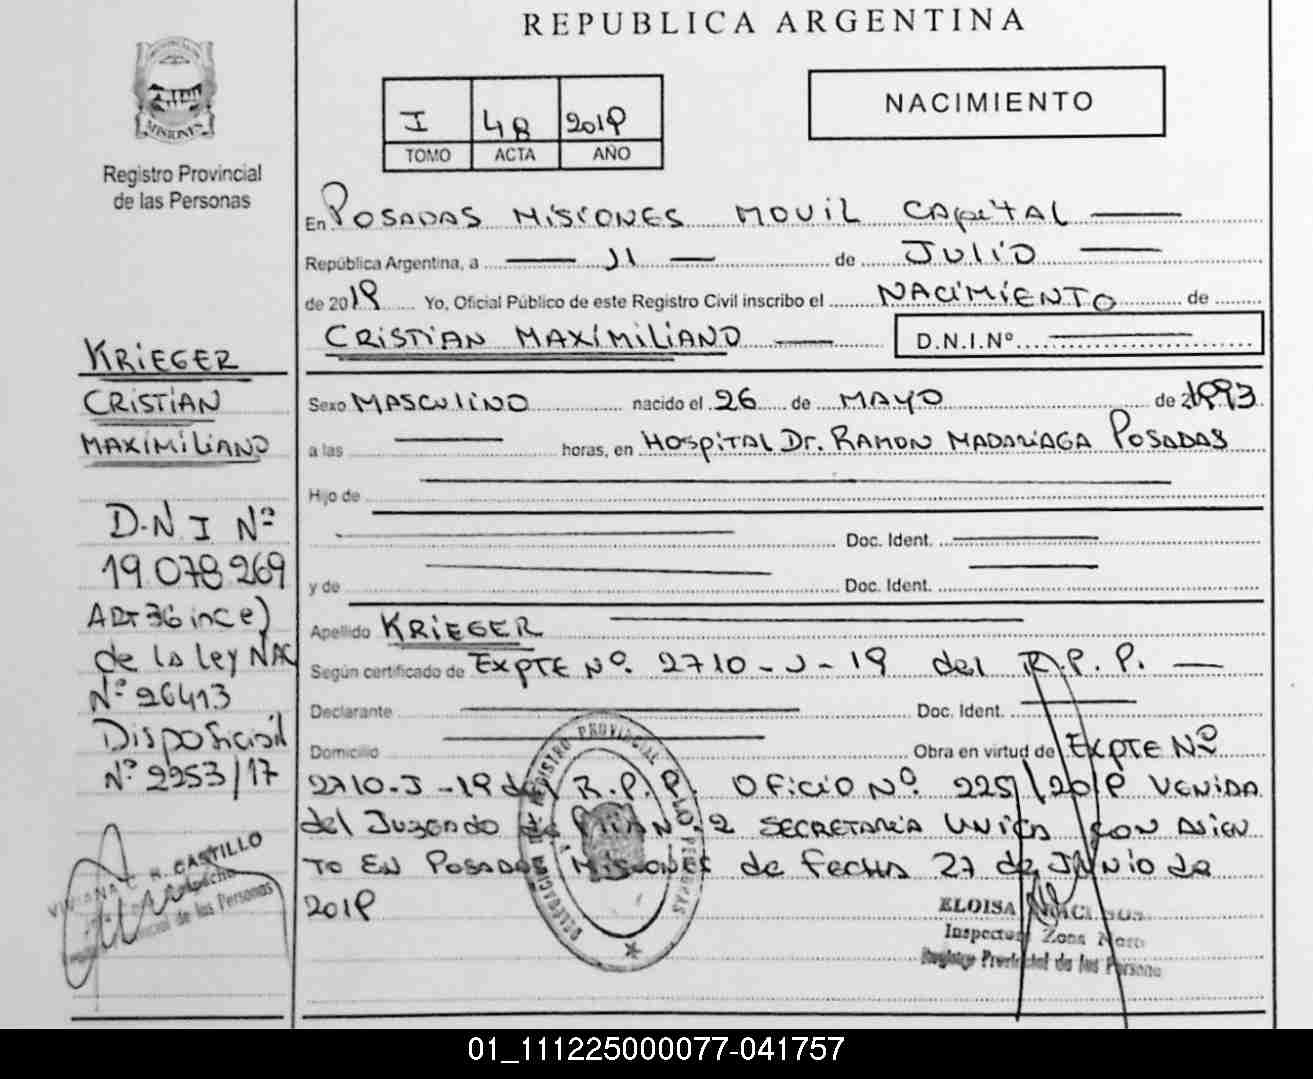 REPUBLICA ARGENTINA
NACIMIENTO
I 48 2019
TOMO ACTA AÑO
MISIONES
Registro Provincial
de las Personas
En POSADAS MISIONES MOVIL CAPITAL
República Argentina, a 11 de JULIO
de 2019 Yo, Oficial Público de este Registro Civil inscribo el NACIMIENTO de
CRISTIAN MAXIMILIANO D.N.I.Nº
KRIEGER
CRISTIAN
MAXIMILIANO
D.N.I Nº
19 078 269
ART 36 inc e)
de la Ley NAC
Nº 26413
DISPOSICION
Nº 2253/17
Sexo MASCULINO nacido el 26 de MAYO de 1993
a las horas, en HOSPITAL Dr. RAMON MADARIAGA POSADAS
Hijo de
Doc. Ident.
y de Doc. Ident.
Apellido KRIEGER
Según certificado de EXPTE Nº 2710-J-19 del R.P.P.
Declarante Doc. Ident.
Domicilio Obra en virtud de EXPTE Nº
2710-J-19 del R.P.P. OFICIO Nº 225/2019 VENIDA
del JUZGADO de Nº 2 SECRETARIA UNICA CON ASIEN
TO EN POSADAS MISIONES de FECHA 27 de JUNIO de
2019
REGISTRO PROVINCIAL DE LAS PERSONAS
DELEGACION
VIVIANA C. R. CASTILLO
Provincial de las Personas
ELOISA
Inspectora Zona
Registro Provincial de las Personas
01_111225000077-041757